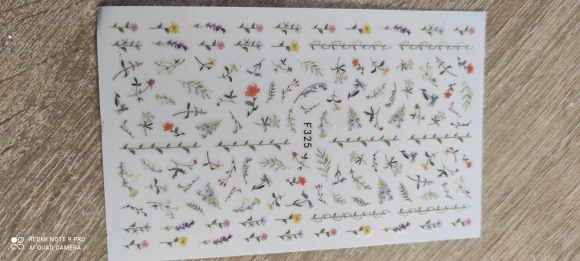 F325
REDMI NOTE 9 PRO
AI QUAD CAMERA